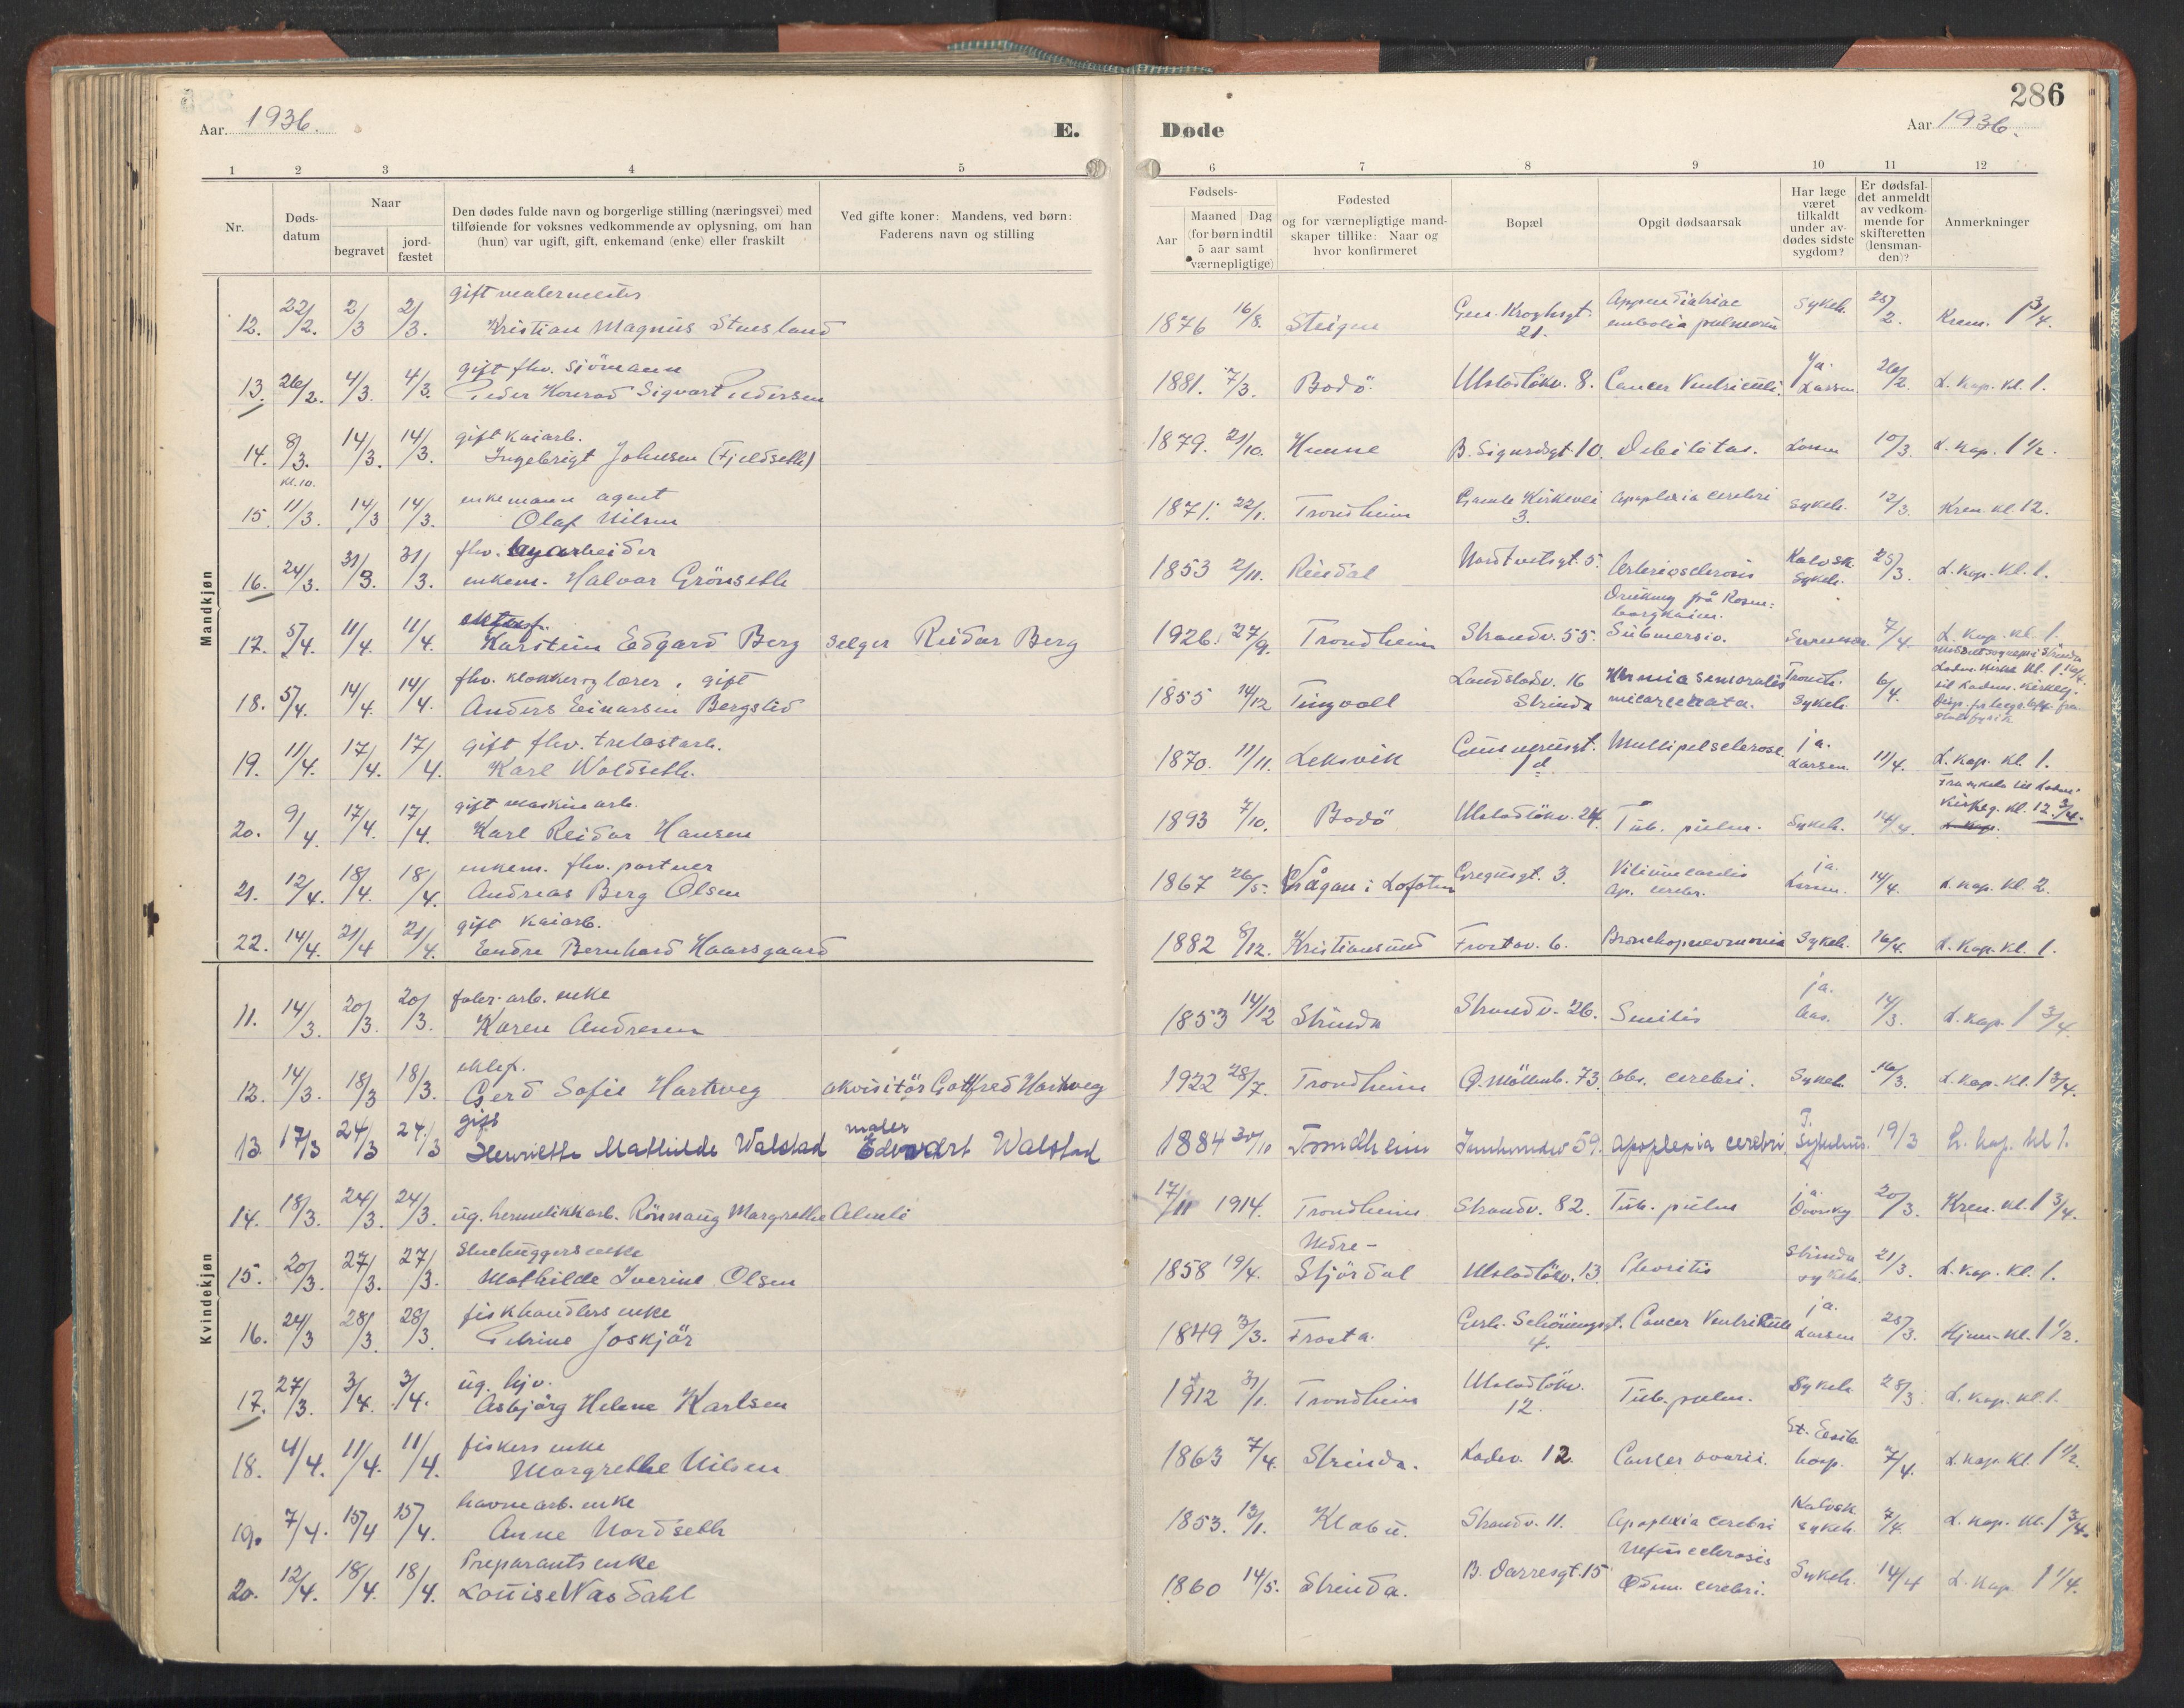 286
Aar 1936. E. Døde Aar 1936.
1 2 3 4 5 6 7 8 9 10 11 12
Nr.
Døds-
datum
Naar
begravet
jord-
fæstet
Den dødes fulde navn og borgerlige stilling (næringsvei) med
tilføiende for voksnes vedkommende av oplysning, om han
(hun) var ugift, gift, enkemand (enke) eller fraskilt
Ved gifte koner: Mandens, ved børn:
Faderens navn og stilling
Fødsels-
Aar
Maaned Dag
(for børn indtil
5 aar samt
værnepligtige)
Fødested
og for værnepligtige mand-
skaper tillike: Naar og
hvor konfirmeret
Bopæl
Opgit dødsaarsak
Har læge
været
tilkaldt
under av-
dødes sidste
sygdom?
Er dødsfal-
det anmeldt
av vedkom-
mende for
skifteretten
(lensman-
den)?
Anmerkninger
Mandkjøn
gift malermester
12. 22/2. 2/3 2/3. Kristian Magnus Stuesland 1876 16/8. Steigen Gen. Kroghsgt. 21. embolia pulmonum Sykeh. 25/2. Krem. 1 3/4.
gift fhv. sjömann
13. 26/2. 4/3. 4/3. Peder Konrad Sigvart Pedersen 1881. 7/3. Bodö. Ulstadlökv. 8. Cancer Ventriculi. ja. Larsen. 26/2. L. kap. kl. 1.
gift kaiarb.
14. 8/3. kl. 10. 14/3. 14/3. Ingebrigt Johnsen (Fjeldseth) 1879. 21/10. Hemne B. Sigurdsgt. 10. Debilitas. Larsen 10/3. L. kap. 1 1/2.
enkemann agent
15. 11/3. 14/3 14/3. Olaf Nilsen 1871. 22/1. Trondheim Gamle Kirkevei 3. Apoplexia cerebri Sykeh. 12/3. Krem. kl. 12.
fhv. byarbeider
16. 24/3. 31/3. 31/3. enkem. Halvar Grönseth 1853 2/11. Rindal Nordtvetsgt. 5. Arteriosclerosis Kalvsk. Sykeh. 25/3. L. kap. kl. 1.
17. 5/4. 11/4. 11/4. Karstein Edgard Berg selger Reidar Berg 1926. 27/9. Trondheim Strandv. 55. Drukning på Rosen-
borgkaien.
Submersio. 7/4. L. kap. kl. 1.
fhv. klokker og lærer, gift
18. 5/4. 14/4. 14/4. Anders Einarsen Bergslid 1855 14/12 Tingvoll Landstadv. 16 Strinda Hernia Sykeh. 6/4. Ladem. Kirke kl. 1.
gift fhv. trelastarb.
19. 11/4. 17/4. 17/4. Karl Woldseth. 1870. 11/11. Leksvik Multipelsclerose. ja. Larsen. 11/4. L. kap. kl. 1.
gift maskinarb.
20. 9/4 17/4. 17/4. Karl Reidar Hansen 1893 7/10. Bodö Ulstadlökv. 24. Tub. pulm. Sykeh. 14/4. Kirkeg. kl. 12 3/4.
enkem. fhv. partner
21. 12/4. 18/4. 18/4. Andreas Berg Olsen 1867 26/5. Vågan i Lofoten Gregusgt. 3. Ap. cerebr. ja. Larsen. 14/4. L. kap. kl. 2.
gift kaiarb.
22. 14/4. 21/4 21/4. Endre Bernhard Haarsgaard 1882 8/12. Kristiansund Frostav. 6. Bronchopneumonia Sykeh. 16/4. L. kap. kl. 1.
Kvindekjøn
fabr. arb. enke
11. 14/3. 20/3. 20/3. Karen Andresen 1853 14/12 Strinda Strandv. 26. Senilis ja. Aas. 14/3. L. kap. 1 3/4.
eklef.
12. 14/3. 18/3 18/3. Gerd Sofie Hartveg akvisitör Gotfred Hartveg 1922 28/7. Trondheim Ø. Möllenb. 73. Abs. cerebri. Sykeh. 16/3. L. kap. kl. 1 3/4.
gift maler
13. 17/3 24/3 24/3 Henriette Mathilde Walstad Edevart Walstad 1884 30/10 Trondheim Innherredsv 59. Apoplexia cerebri T. Sykehus. 19/3 L. kap. kl 1.
14. 18/3. 24/3. 24/3. ug. hermetikkarb. Rönnaug Margrethe Almli 17/11 1914. Trondheim Strandv. 82. Tub. pulm ja. 20/3. Krem. kl. 1 3/4.
Stuehuggers enke
15. 20/3. 27/3. 27/3. Mathilde Iverine Olsen 1858 19/4. Nedre-
Stjördal Ulstadlökv. 13. Strinda sykeh. 21/3. L. kap. kl. 1.
fiskhandlers enke
16. 24/3 28/3. 28/3. Petrine Joskjär 1849 3/3. Frosta. Gerh. Schöningsgt. 4. Cancer Ventriculi ja. Larsen 25/3. Hjem. kl. 1 1/2.
ug. hjv.
17. 27/3. 3/4. 3/4. Asbjörg Helene Karlsen 1912 31/1. Trondheim Ulstadlökv. 12. Tub. pulm. Sykeh. 28/3 L. kap. kl. 1.
fiskers enke
18. 4/4. 11/4. 11/4. Margrethe Nilsen 1863 7/4. Strinda. Ladev. 12. Cancer ovarii. St. Elisab. hosp. 7/4. L. kap. kl. 1 1/2.
havnearb. enke
19. 7/4. 15/4 15/4. Anne Nordseth 1853. 13/1. Klæbu. Strandv. 11. Apoplexia cerebri Kalvsk. sykeh. 7/4. L. kap. kl. 1 3/4.
Preparants enke
20. 12/4. 18/4. 18/4. Louise Wasdahl 1860 14/5. Strinda. B. Darresgt. 15 Ödem. cerebri. Sykeh. 14/4 L. kap. 1 1/4.